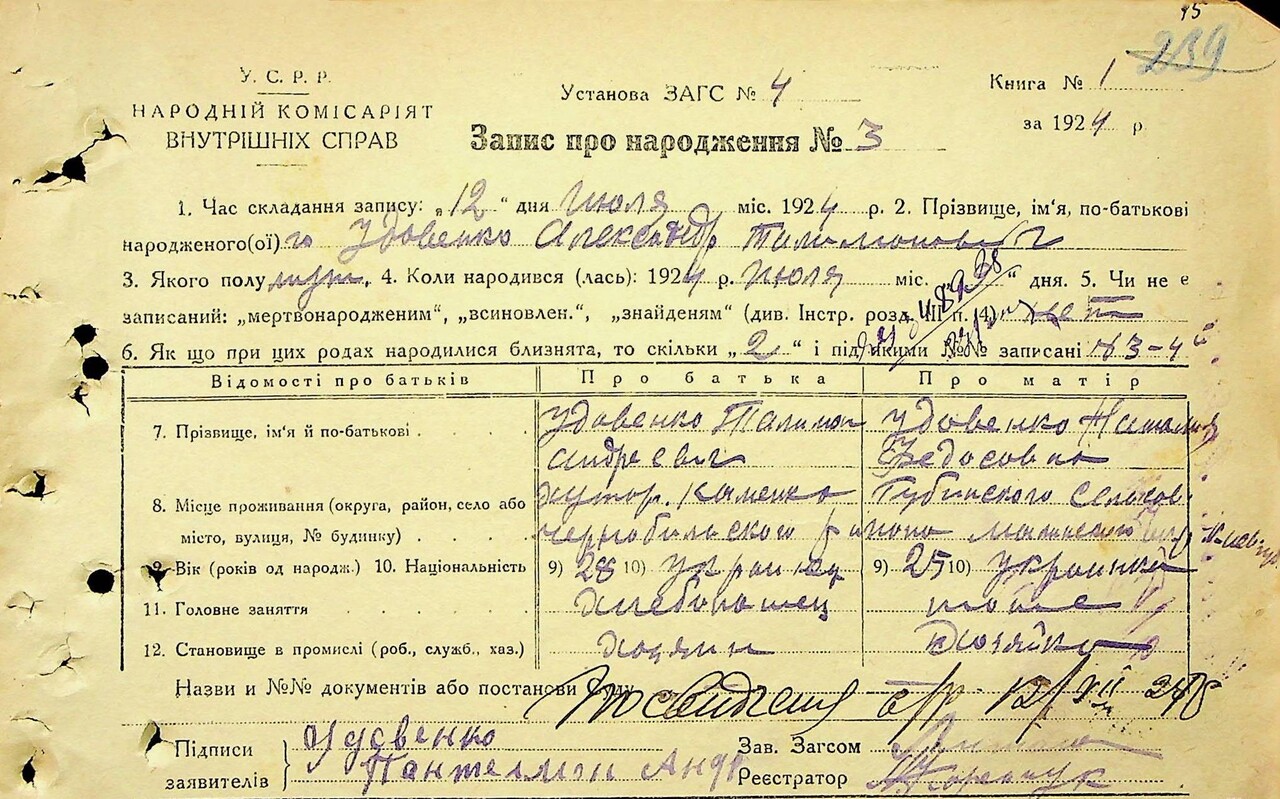 15
239
У. С. Р. Р.
НАРОДНІЙ КОМІСАРІЯТ
ВНУТРІШНІХ СПРАВ
Установа ЗАГС № 4
Книга № 1
за 1924 р.
Запис про народження № 3
1. Час складання запису: „12“ дня Июля міс. 1924 р. 2. Прізвище, ім'я, по-батькові
народженого(ої) Удовенко Александр
3. Якого полу муж. 4. Коли народився (лась): 1924 р. Июля міс. “ дня. 5. Чи не є
записаний: „мертвонародженим“, „всиновлен.“, „знайденям“ (див. Інстр. розд. III п. (4) нет
6. Як що при цих родах народилися близнята, то скільки „2“ і під якими №№ записані №3-4
Відомості про батьків Про батька Про матір
7. Прізвище, ім'я й по-батькові Удовенко Удовенко
Андреевич Федосовна
8. Місце проживання (округа, район, село або хутор Каменка Губинского
місто, вулиця, № будинку) Чернобильского района
9. Вік (років од народж.) 10. Національність 9) 28 10) украинец 9) 25 10) украинка
11. Головне заняття хлебопашец тоже
12. Становище в промислі (роб., служб., хаз.) хозяин хозяйка
Назви и №№ документів або постанови суду
Підписи
заявителів
Удовенко
Пантелмон Андр
Зав. Загсом
Реєстратор